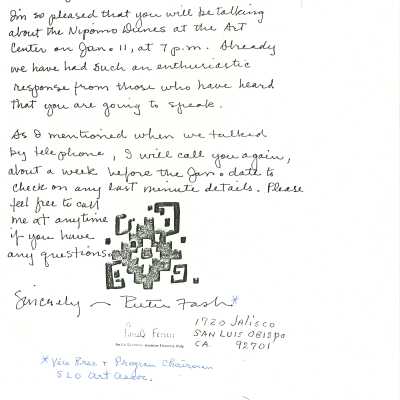 I'm so pleased that you will be talking
about the Nipomo Dunes at the Art
Center on Jan. 11, at 7 p.m. Already
we have had such an enthusiastic
response from those who have heard
that you are going to speak.
As I mentioned when we talked
by telephone, I will call you again,
about a week before the Jan. date to
check on any last minute details. Please
feel free to call
me at anytime
if you have
any questions.
Sincerely ~
1720 JALISCO
SAN LUIS OBISPO
CA 92701
*Vice Pres + Program Chairman
SLO Art Assoc.